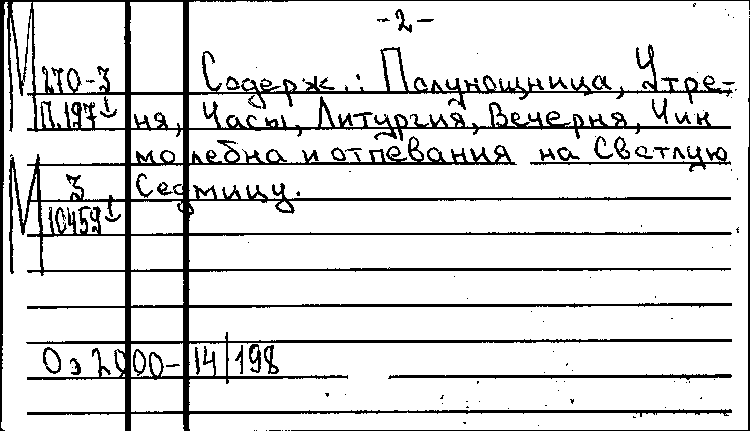 -2-
270-3 Содерж.: Полунощница, Утре-
П.197↓ ня, Часы, Литургия, Вечерня, Чин
молебна и отпевания на Светлую
З Седмицу.
10459↓
Оз 2000-14|198